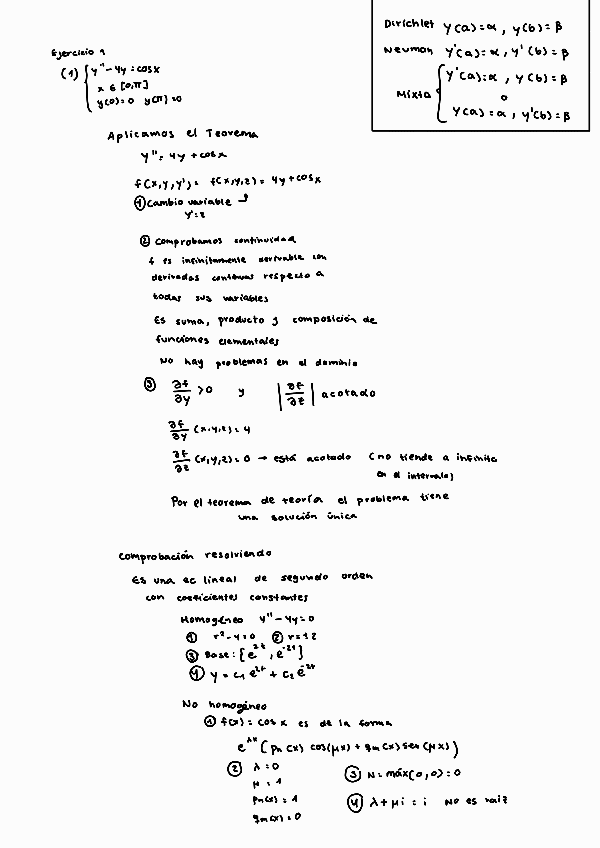 Dirichlet y(a)=α , y(b)=β
Neuman y'(a)=α , y'(b)=β
Mixta { y'(a)=α , y(b)=β
o
y(a)=α , y'(b)=β
Ejercicio 1
(1) { y''-4y=cosx
x ∈ [0,π]
y(0)=0 y(π)=0
Aplicamos el Teorema
y''=4y+cosx
f(x,y,y')= f(x,y,z)= 4y+cosx
① Cambio variable
y'=z
② Comprobamos continuidad
f es infinitamente derivable con
derivadas continuas respecto a
todas sus variables
Es suma, producto y composición de
funciones elementales
No hay problemas en el dominio
③ ∂f/∂y >0 y |∂f/∂z| acotado
∂f/∂y (x,y,z)=4
∂f/∂z (x,y,z)=0 → está acotado (no tiende a infinito
en el intervalo)
Por el teorema de teoría el problema tiene
una solución única
Comprobación resolviendo
Es una ec lineal de segundo orden
con coeficientes constantes
Homogéneo y''-4y=0
① r²-4=0 ② r=±2
③ Base: {e^2t, e^-2t}
④ y = c₁e^2t + c₂e^-2t
No homogéneo
① f(x)=cosx es de la forma
e^λx (pn(x) cos(μx) + qm(x) sen(μx))
② λ=0 ③ N=máx(0,0)=0
μ=1
pn(x)=1 ④ λ+μi=i No es raíz
qm(x)=0